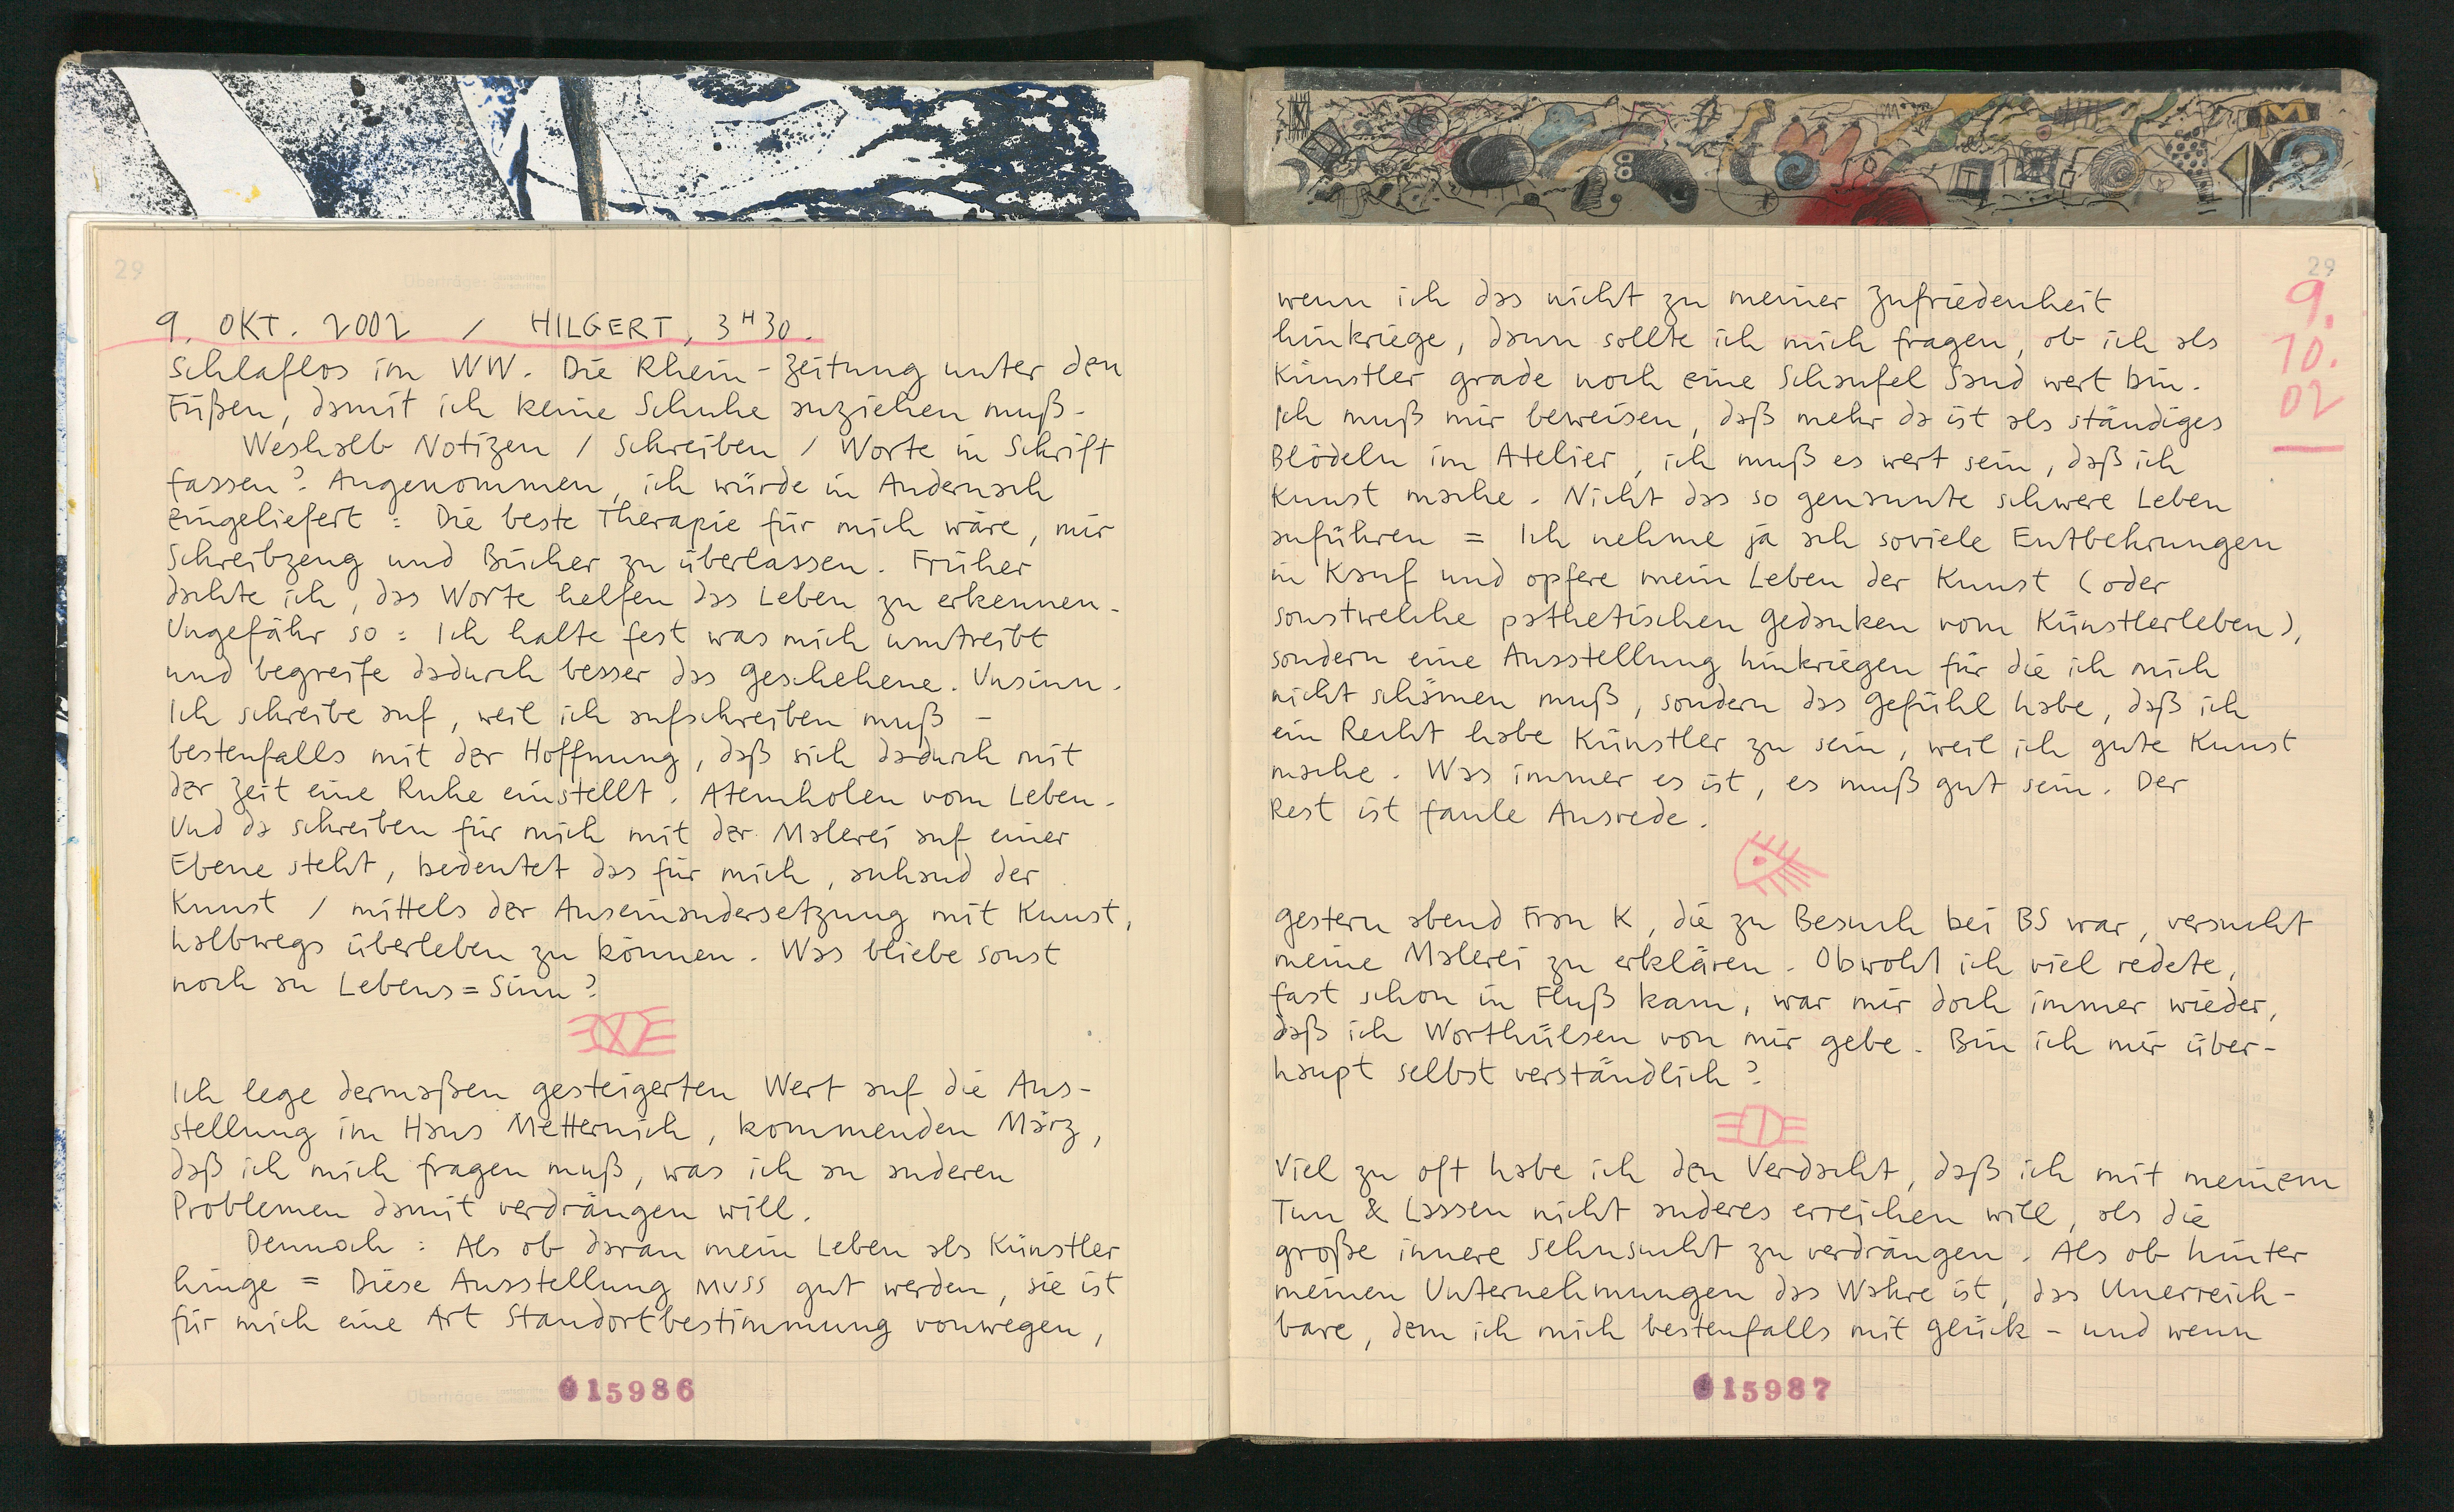 29
9. OKT. 2002 / HILGERT, 3H30.
Schlaflos im WW. Die Rhein-Zeitung unter den
Füßen, damit ich keine Schuhe anziehen muß.
Weshalb Notizen / Schreiben / Worte in Schrift
fassen? Angenommen, ich würde in Andernach
eingeliefert: Die beste Therapie für mich wäre, mir
Schreibzeug und Bücher zu überlassen. Früher
dachte ich, das Worte helfen das Leben zu erkennen.
Ungefähr so: Ich halte fest was mich umtreibt
und begreife dadurch besser das Geschehene. Unsinn.
Ich schreibe auf, weil ich aufschreiben muß –
bestenfalls mit der Hoffnung, daß sich dadurch mit
der Zeit eine Ruhe einstellt. Atemholen vom Leben.
Und da schreiben für mich mit der Malerei auf einer
Ebene steht, bedeutet das für mich, anhand der
Kunst / mittels der Auseinandersetzung mit Kunst,
halbwegs überleben zu können. Was bliebe sonst
noch an Lebens=Sinn?
Ich lege dermaßen gesteigerten Wert auf die Aus-
stellung im Haus Metternich, kommenden März,
daß ich mich fragen muß, was ich an anderen
Problemen damit verdrängen will.
Dennoch: Als ob daran mein Leben als Künstler
hinge = Diese Ausstellung MUSS gut werden, sie ist
für mich eine Art Standortbestimmung vonwegen,
015986
29
9.
10.
02
wenn ich das nicht zu meiner Zufriedenheit
hinkriege, dann sollte ich mich fragen, ob ich als
Künstler grade noch eine Schaufel Sand wert bin.
Ich muß mir beweisen, daß mehr da ist als ständiges
Blödeln im Atelier, ich muß es wert sein, daß ich
Kunst mache. Nicht das so genannte schwere Leben
anführen = Ich nehme ja ach soviele Entbehrungen
in Kauf und opfere mein Leben der Kunst (oder
sonstwelche pathetischen Gedanken vom Künstlerleben),
sondern eine Ausstellung hinkriegen für die ich mich
nicht schämen muß, sondern das Gefühl habe, daß ich
ein Recht habe Künstler zu sein, weil ich gute Kunst
mache. Was immer es ist, es muß gut sein. Der
Rest ist faule Ausrede.
Gestern abend Frau K, die zu Besuch bei BS war, versucht
meine Malerei zu erklären. Obwohl ich viel redete,
fast schon in Fluß kam, war mir doch immer wieder,
daß ich Worthülsen von mir gebe. Bin ich mir über-
haupt selbst verständlich?
Viel zu oft habe ich den Verdacht, daß ich mit meinem
Tun & Lassen nicht anderes erreichen will, als die
große innere Sehnsucht zu verdrängen. Als ob hinter
meinen Unternehmungen das Wahre ist, das Unerreich-
bare, dem ich mich bestenfalls mit Glück – und wenn
015987